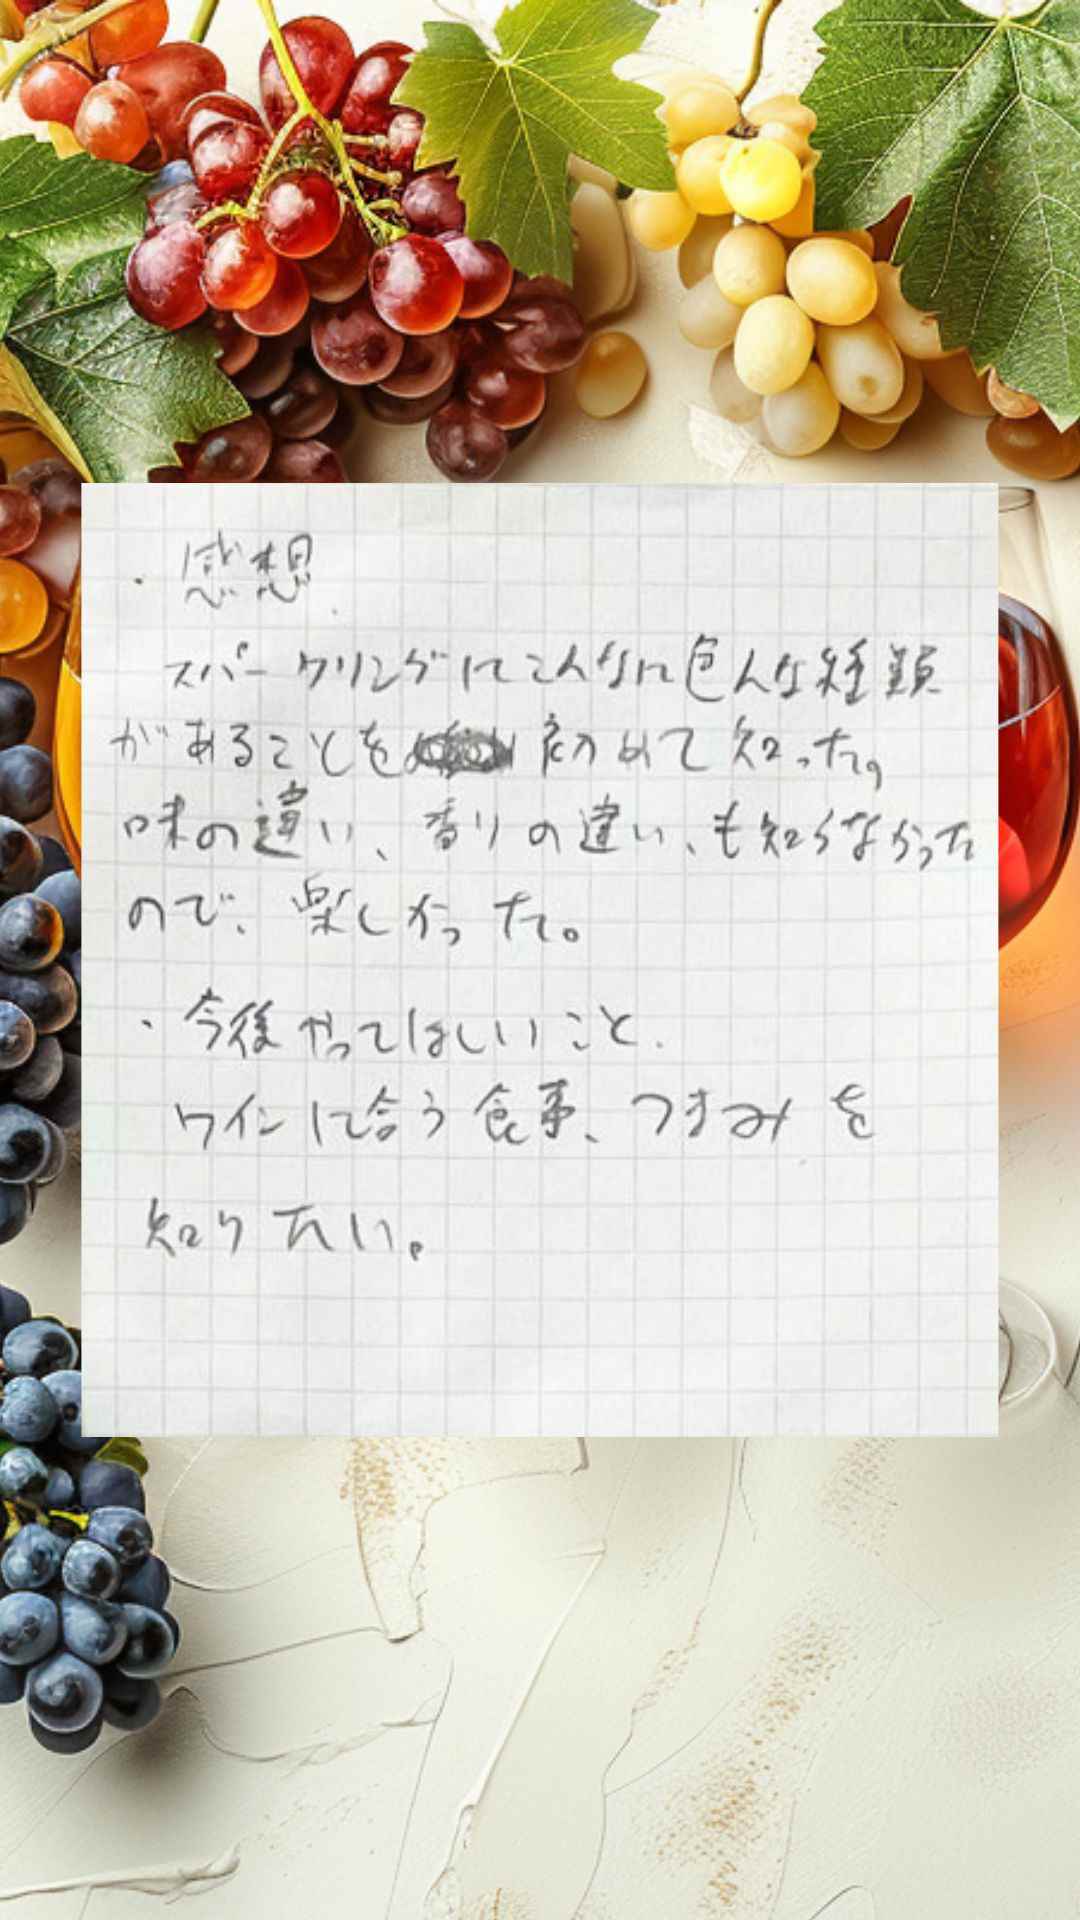 ・感想
スパークリングにこんなに色んな種類
があることを初めて知った。
味の違い、香りの違い、も知らなかった
ので、楽しかった。
・今後やってほしいこと.
ワインに合う食事、つまみを
知りたい。